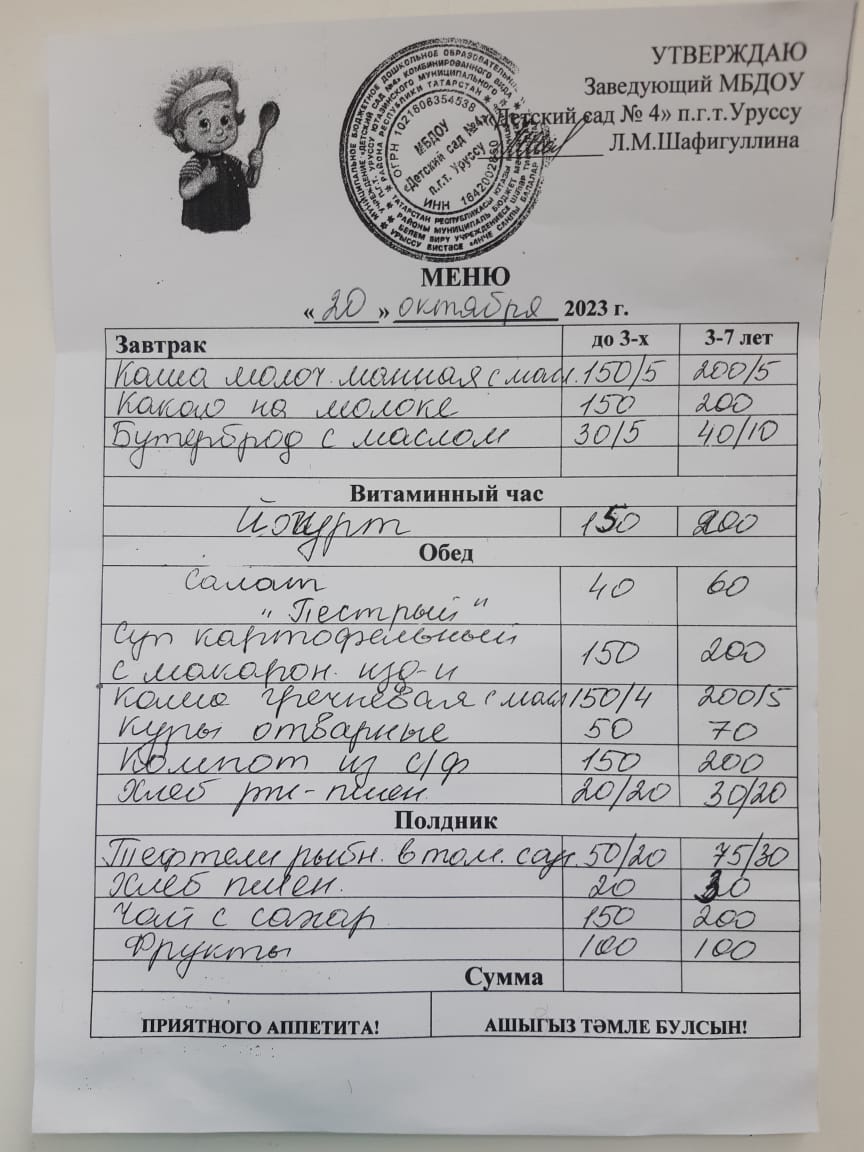 УТВЕРЖДАЮ
Заведующий МБДОУ
«Детский сад № 4» п.г.т.Уруссу
Л.М.Шафигуллина
ОГРН 1021606354538
МБДОУ
«Детский сад №4»
п.г.т. Уруссу
ИНН 1642002860
МЕНЮ
« 20 » октября 2023 г.
Завтрак до 3-х 3-7 лет
Каша молоч. манная с масл. 150/5 200/5
Какао на молоке 150 200
Бутерброд с маслом 30/5 40/10
Витаминный час
Йогурт 150 200
Обед
Салат
"Пестрый" 40 60
Суп картофельный
с макарон. изд-и 150 200
Каша гречневая с масл 150/4 200/5
Куры отварные 50 70
Компот из с/ф 150 200
Хлеб рж-пшен. 20/20 30/20
Полдник
Тефтели рыбн. в том. соус. 50/20 75/30
Хлеб пшен. 20 30
Чай с сахар 150 200
Фрукты 100 100
Сумма
ПРИЯТНОГО АППЕТИТА! АШЫГЫЗ ТӘМЛЕ БУЛСЫН!